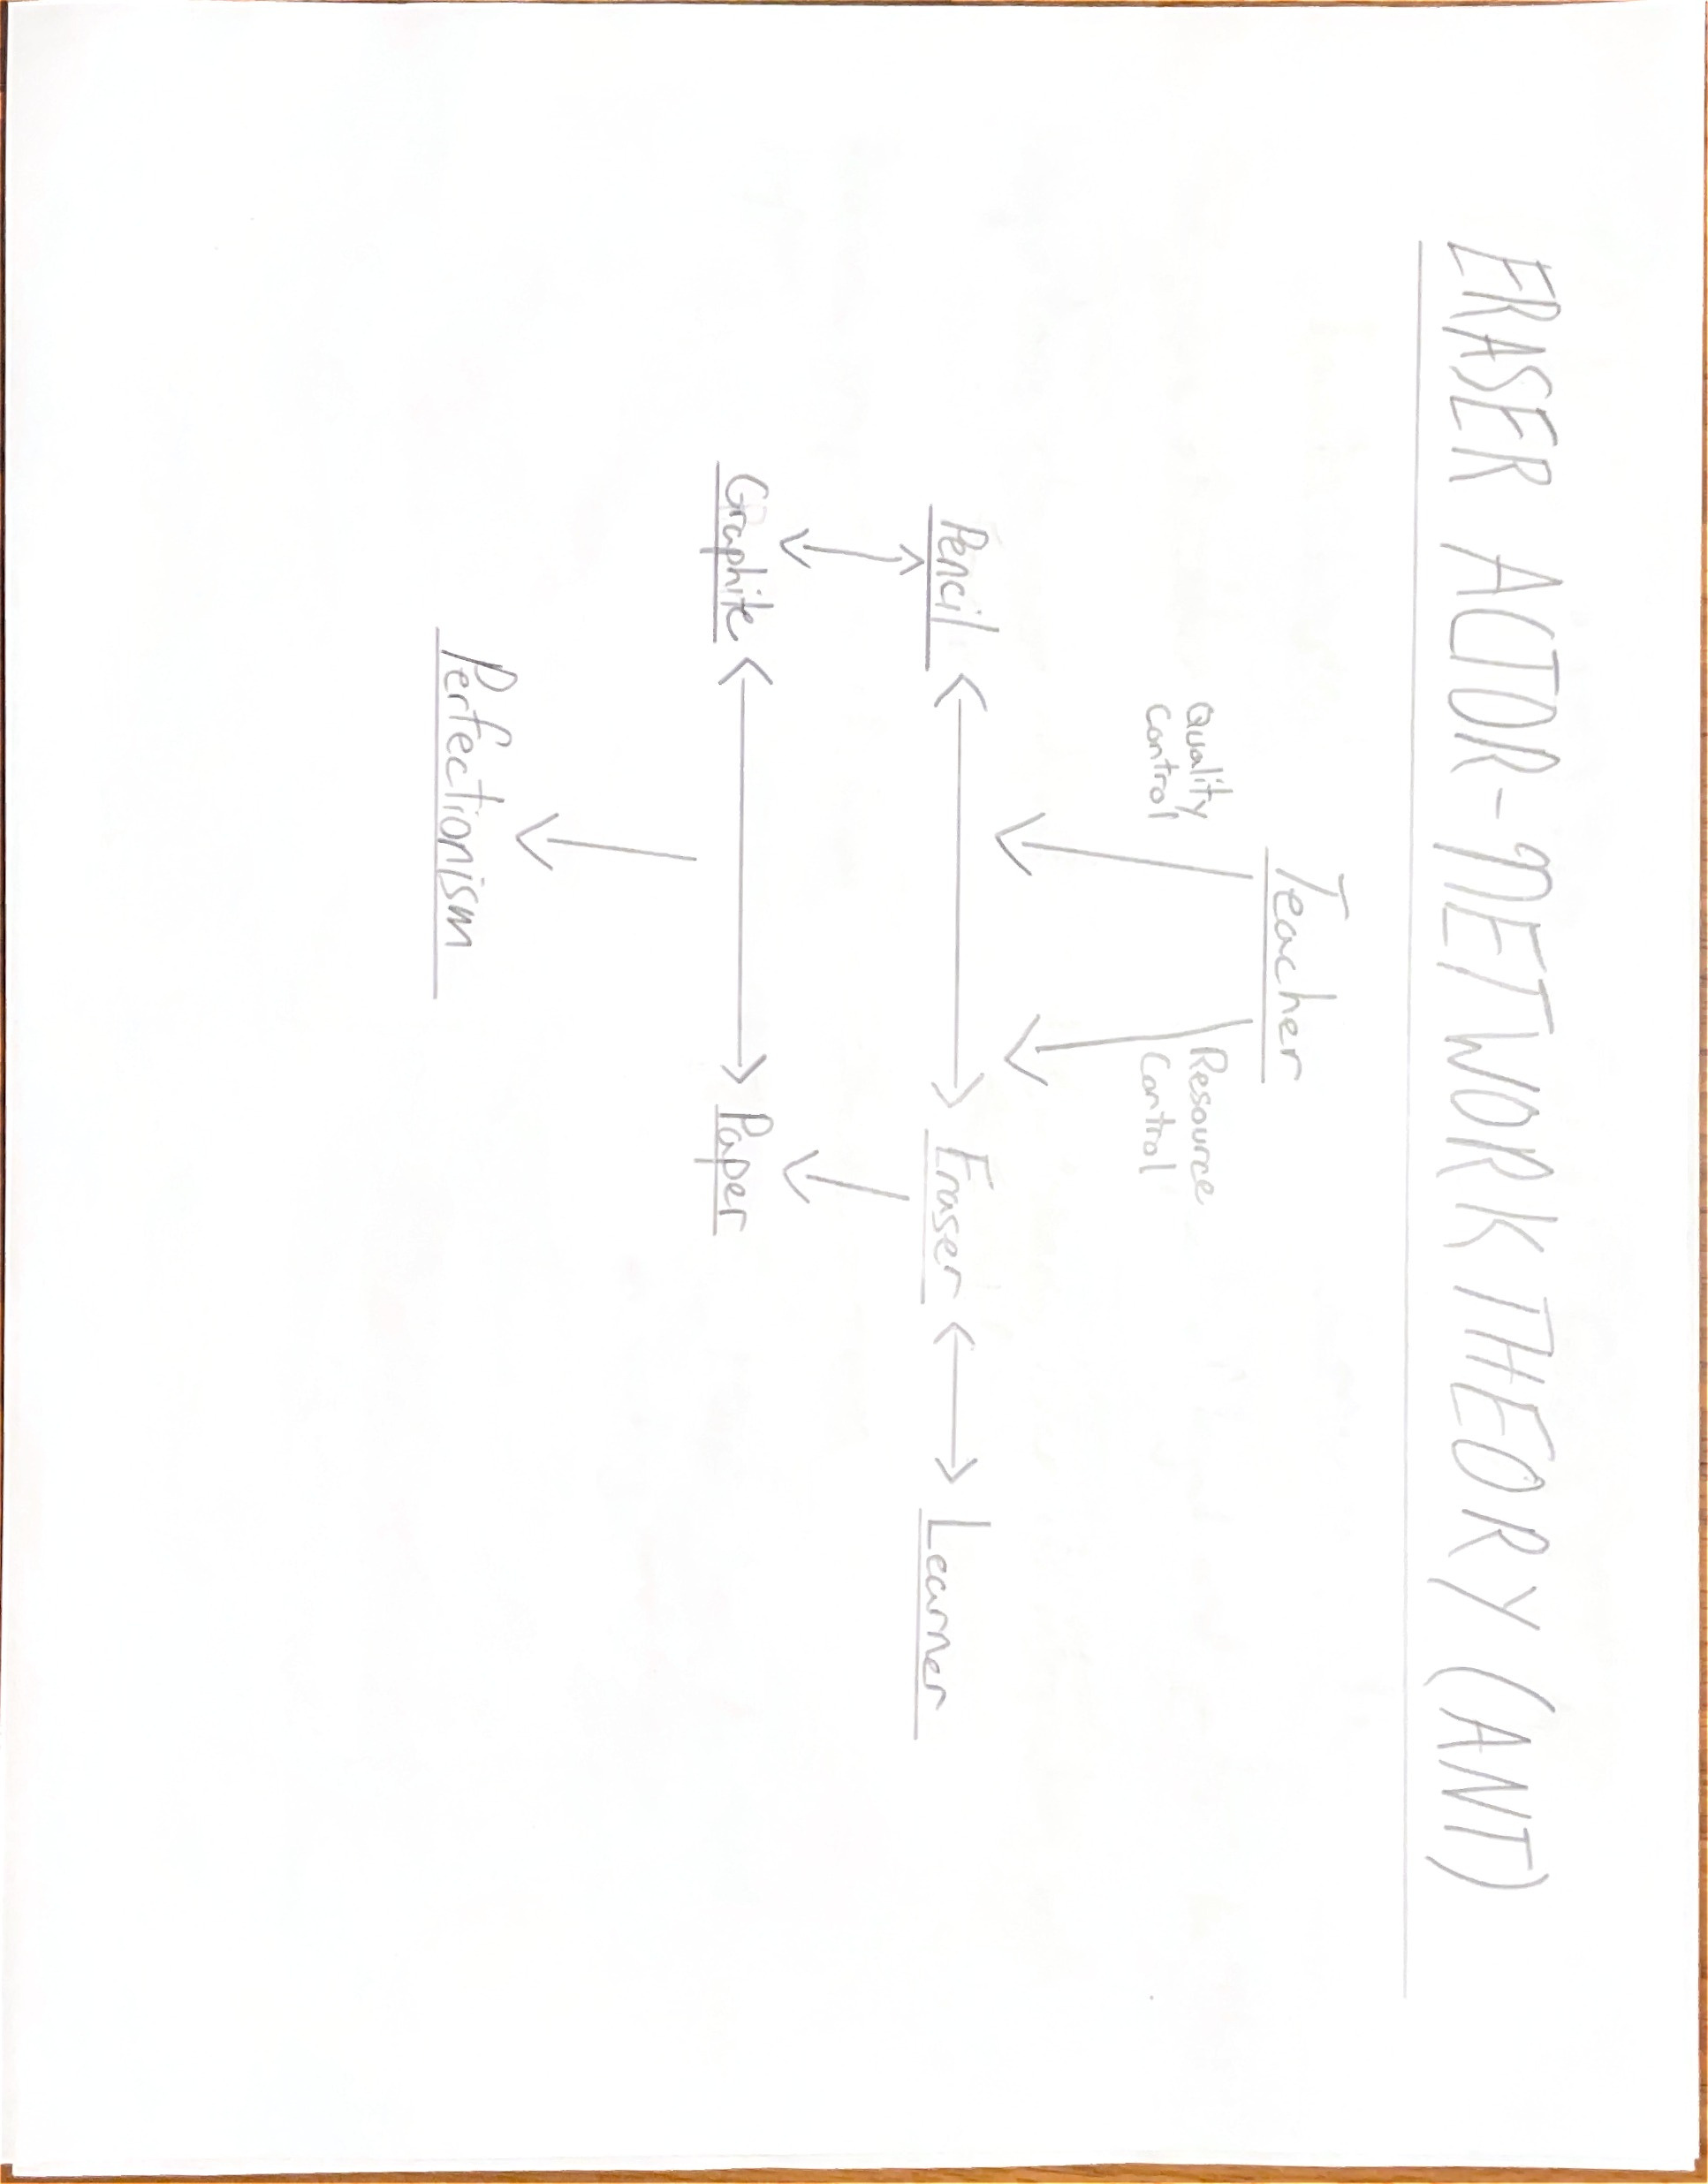 ERASER ACTOR-NETWORK THEORY (ANT)
Teacher
Quality
Control
Resource
Control
Pencil
Eraser
Learner
Graphite
Paper
Perfectionism